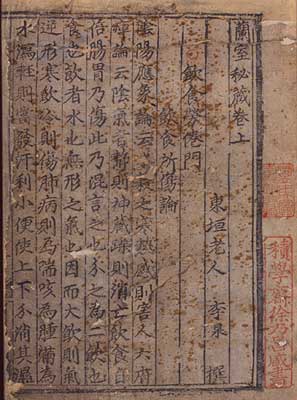 蘭室秘藏卷上
東垣老人 李杲 撰
飲食勞倦門
飲食所傷論
陰陽應象論云水穀之寒熱感則害人六腑
痺論云陰氣者靜則神藏躁則消亡飲食自
倍腸胃乃傷此乃混言之也分之為二飲也
食也飲者水也無形之氣也因而大飲則氣
逆形寒飲冷則傷肺病則為喘咳為腫滿為
水瀉輕則當發汗利小便使上下分消其濕
積學齋徐乃昌藏書